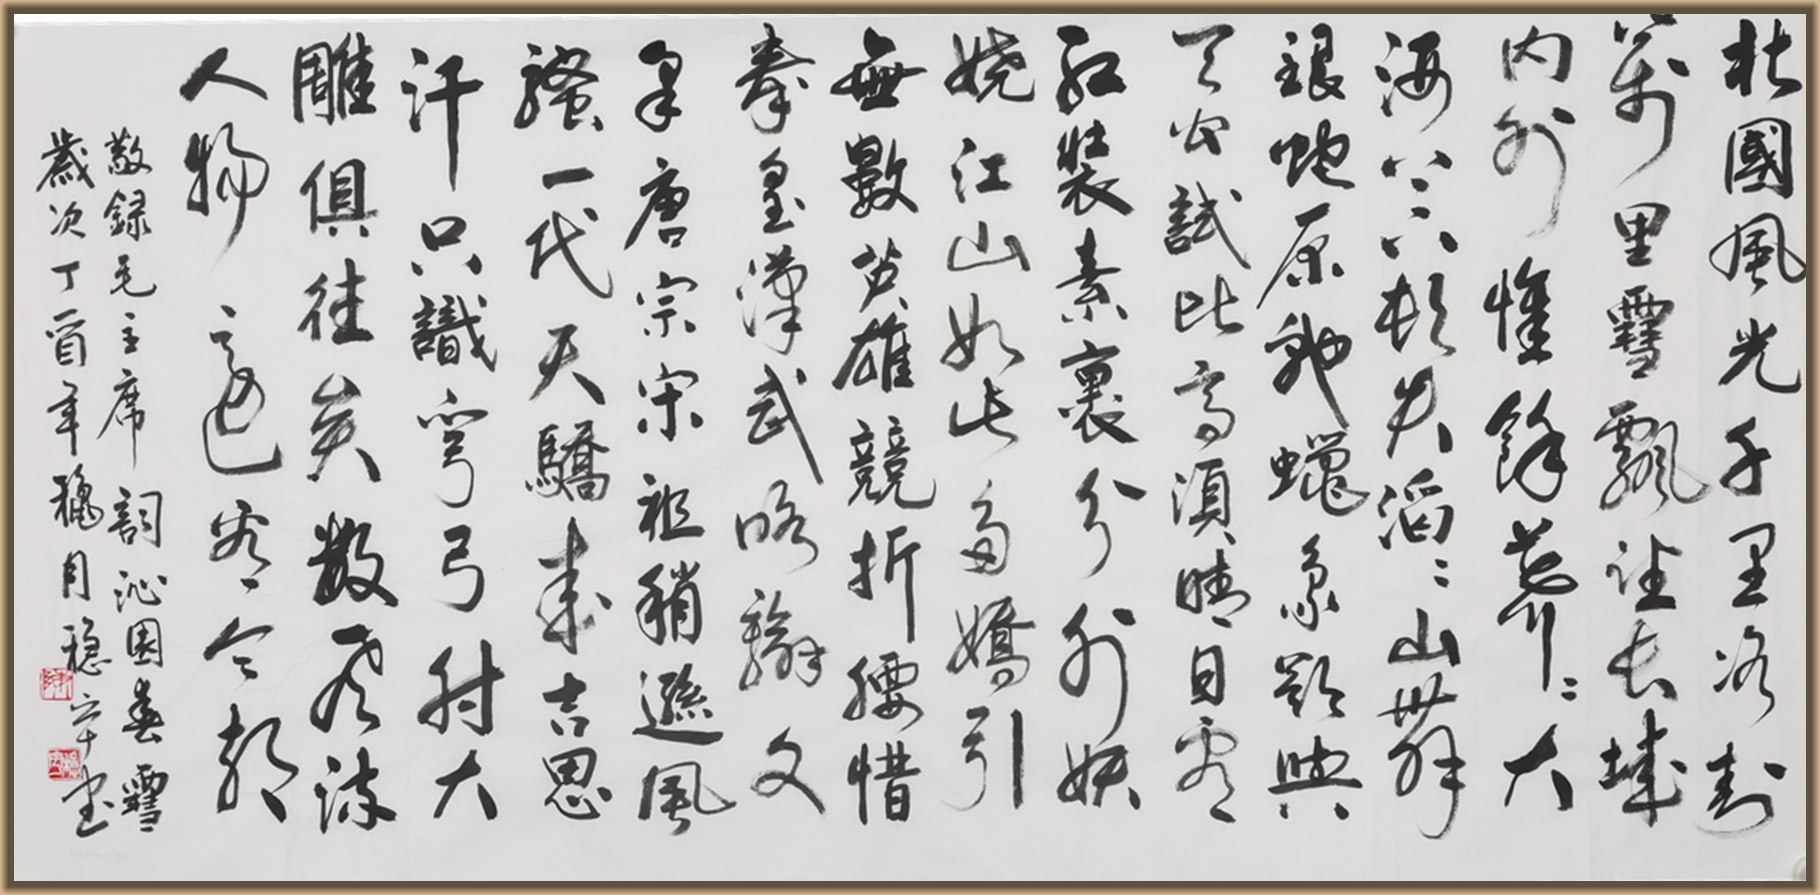 北國風光千里冰封
萬里雪飄望長城
内外惟餘莽〻大
河上下頓失滔〻山舞
銀蛇原馳蠟象欲與
天公試比高須晴日看
紅裝素裹分外妖
嬈江山如此多嬌引
無數英雄競折腰惜
秦皇漢武略輸文
采唐宗宋祖稍遜風
騷一代天驕成吉思
汗只識彎弓射大
雕俱往矣数風流
人物還看今朝
敬録毛主席詞沁園春雪
歲次丁酉年穐月穏